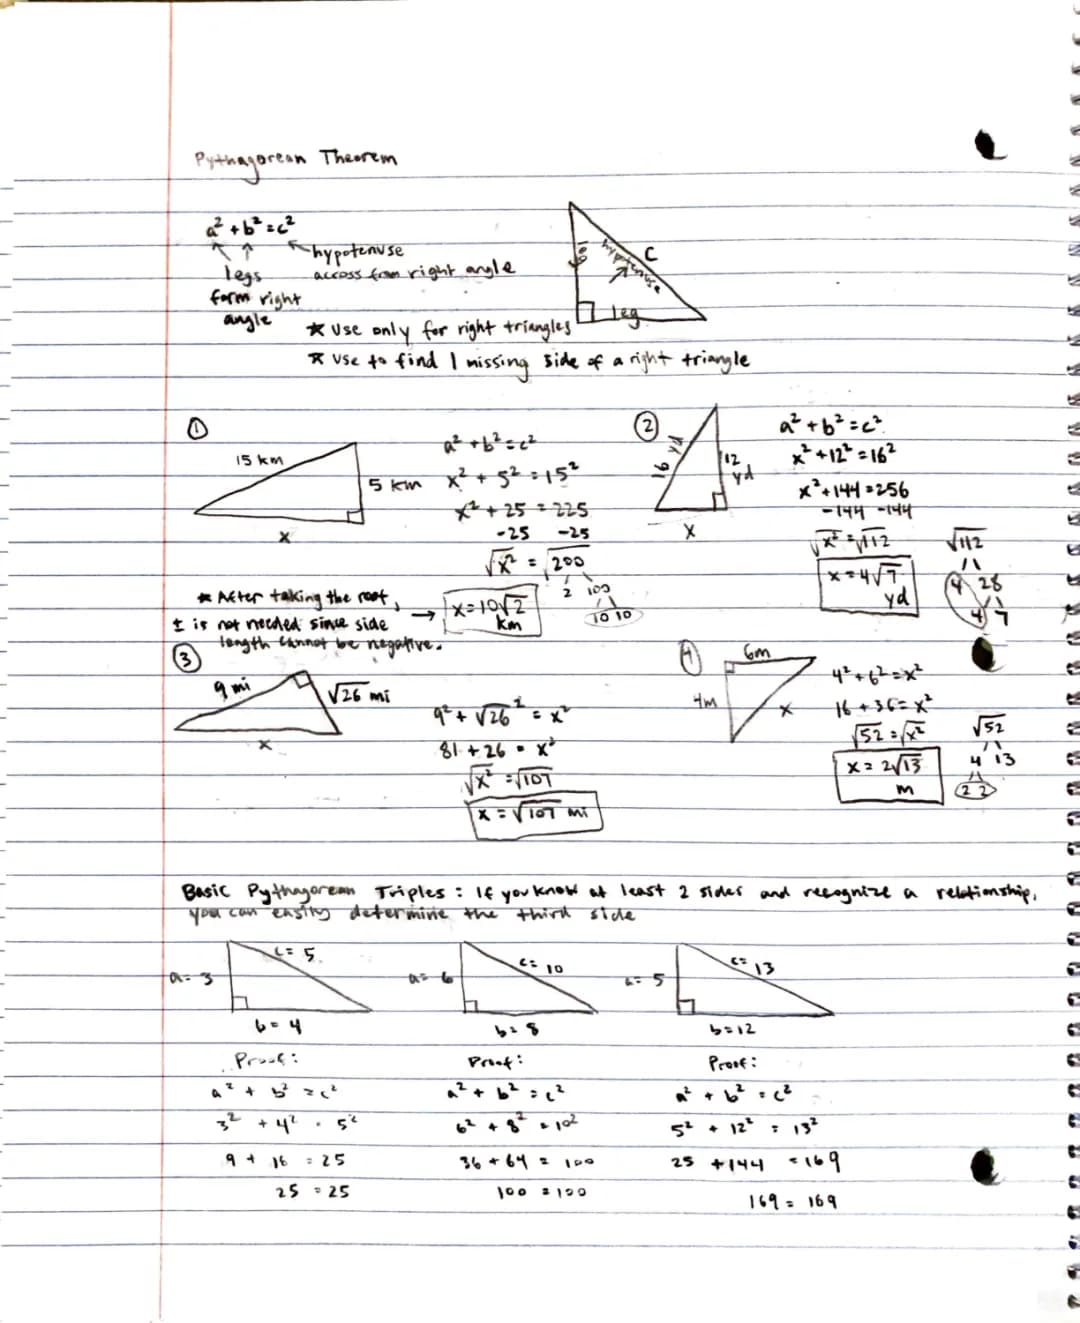 Pythagorean Theorem
a² + b² = c²
hypotenuse
across from right angle
legs
form right
angle
leg
hypotenuse
C
leg
* Use only for right triangles
* Use to find 1 missing side of a right triangle
①
15 km
5 km
x
a² + b² = c²
x² + 5² = 15²
x² + 25 = 225
-25 -25
√x² = √200
2 100
10 10
x = 10√2
km
* After taking the root,
± is not needed since side
length cannot be negative.
②
16 yd
12
yd
x
a² + b² = c²
x² + 12² = 16²
x² + 144 = 256
-144 -144
√x² = √112
x = 4√7
yd
√112
4 28
4 7
③
9 mi
√26 mi
x
9² + √26² = x²
81 + 26 = x²
√x² = √107
x = √107 mi
④
6m
4m
x
4² + 6² = x²
16 + 36 = x²
√52 = √x²
x = 2√13
m
√52
4 13
2 2
Basic Pythagorean Triples : If you know at least 2 sides and recognize a relationship,
you can easily determine the third side
a = 3
c = 5
b = 4
Proof:
a² + b² = c²
3² + 4² = 5²
9 + 16 = 25
25 = 25
a = 6
c = 10
b = 8
Proof:
a² + b² = c²
6² + 8² = 10²
36 + 64 = 100
100 = 100
= 5
c = 13
b = 12
Proof:
a² + b² = c²
5² + 12² = 13²
25 + 144 = 169
169 = 169